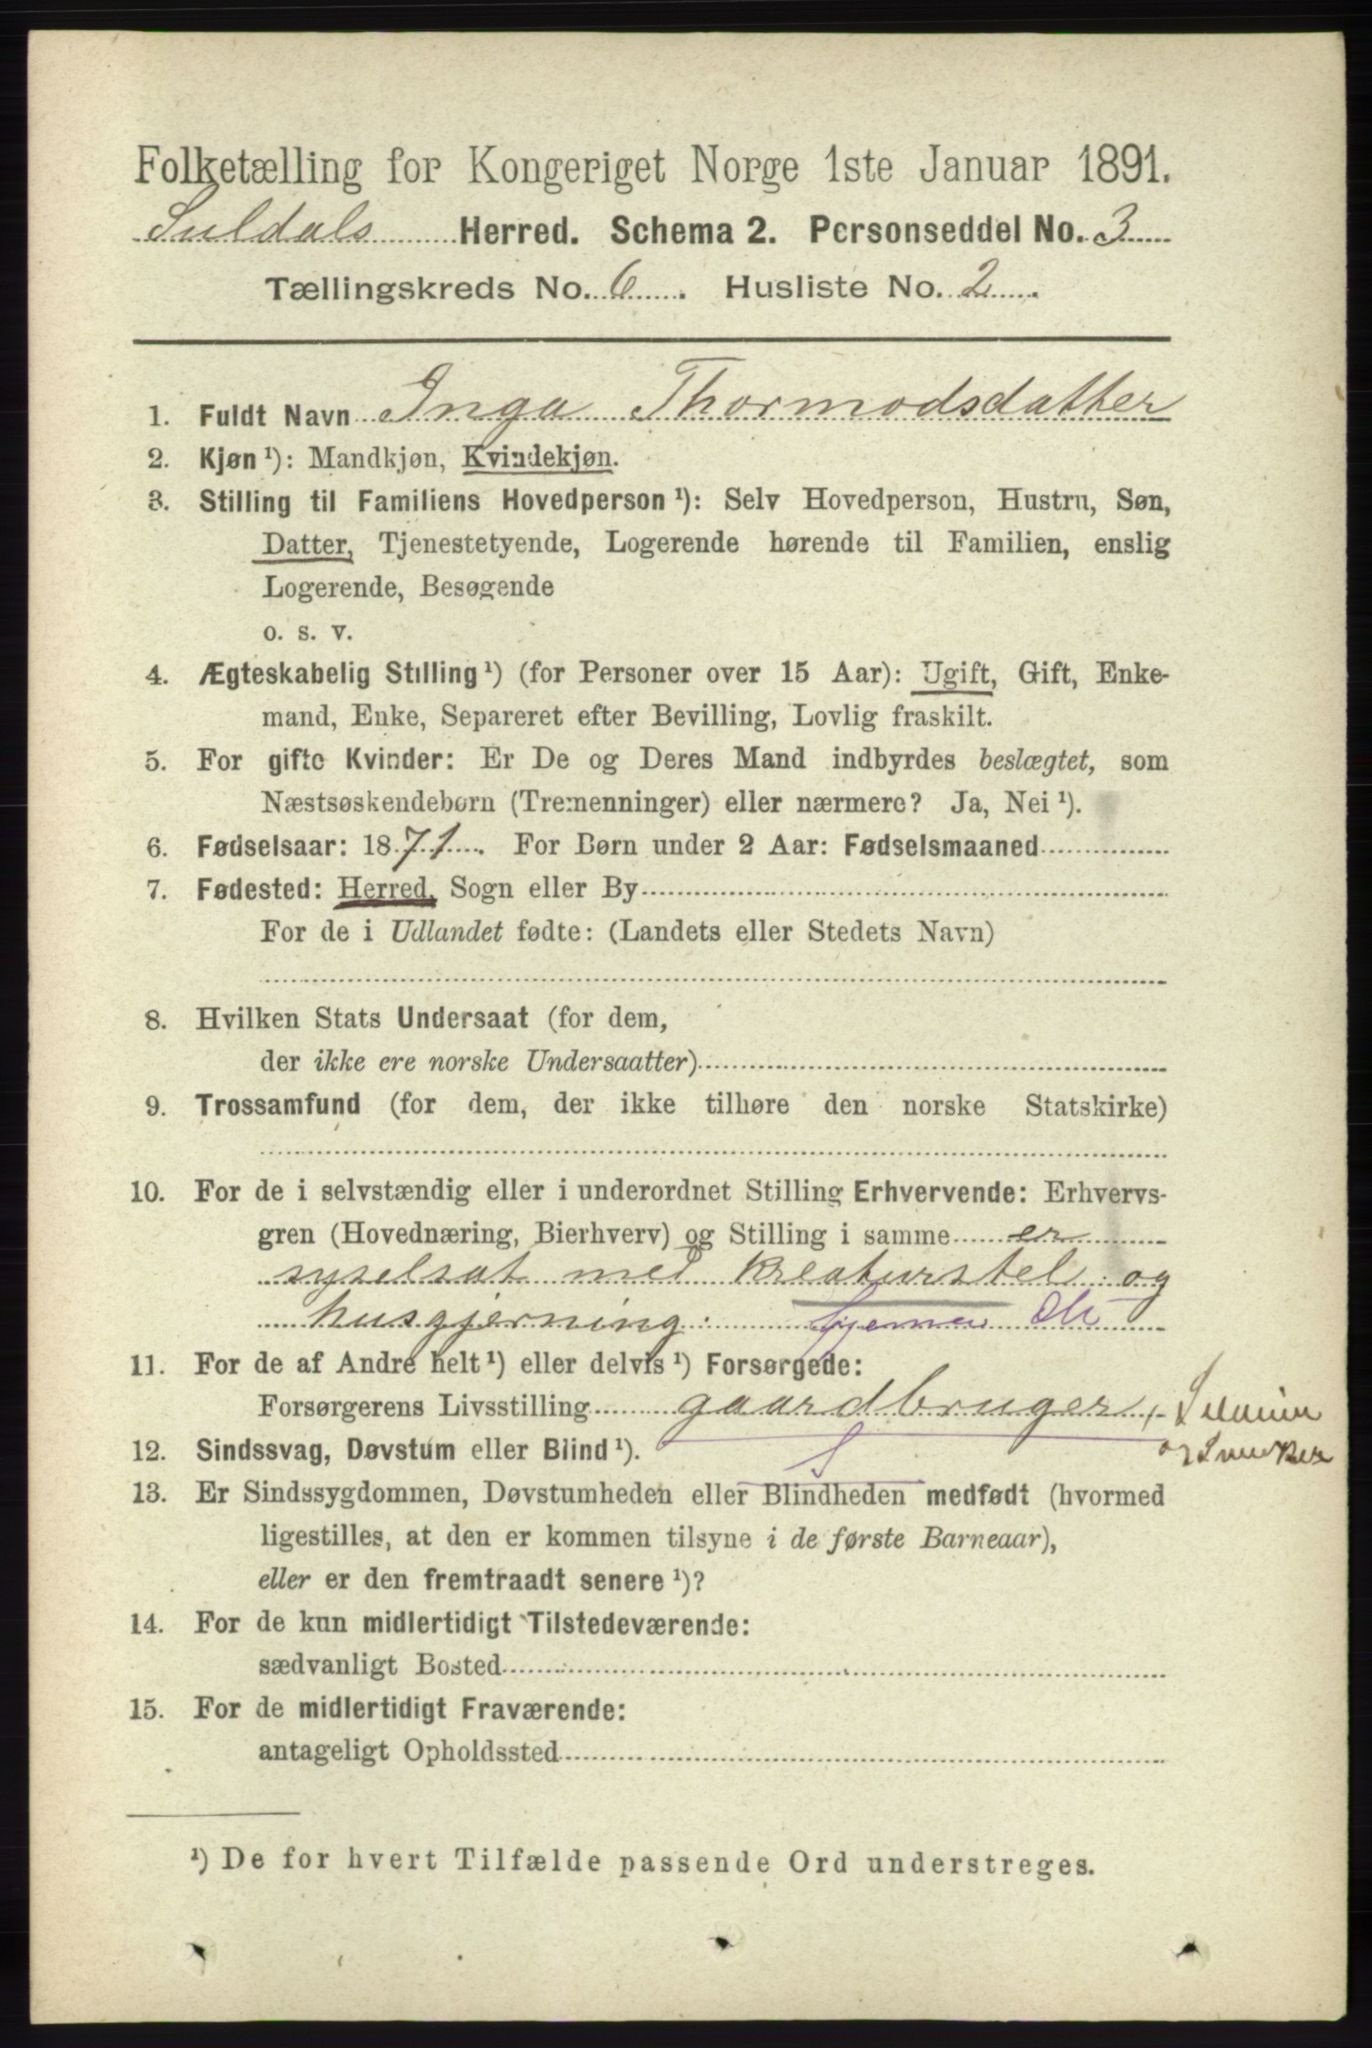 Folketælling for Kongeriget Norge 1ste Januar 1891.
Suldals Herred. Schema 2. Personseddel No. 3
Tællingskreds No. 6. Husliste No. 2.
1. Fuldt Navn Inga Thormodsdatter
2. Kjøn¹): Mandkjøn, Kvindekjøn.
3. Stilling til Familiens Hovedperson¹): Selv Hovedperson, Hustru, Søn,
Datter, Tjenestetyende, Logerende hørende til Familien, enslig
Logerende, Besøgende
o. s. v.
4. Ægteskabelig Stilling¹) (for Personer over 15 Aar): Ugift, Gift, Enke-
mand, Enke, Separeret efter Bevilling, Lovlig fraskilt.
5. For gifte Kvinder: Er De og Deres Mand indbyrdes beslægtet, som
Næstsøskendebørn (Tremenninger) eller nærmere? Ja, Nei¹).
6. Fødselsaar: 1871. For Børn under 2 Aar: Fødselsmaaned
7. Fødested: Herred, Sogn eller By
For de i Udlandet fødte: (Landets eller Stedets Navn)
8. Hvilken Stats Undersaat (for dem,
der ikke ere norske Undersaatter)
9. Trossamfund (for dem, der ikke tilhøre den norske Statskirke)
10. For de i selvstændig eller i underordnet Stilling Erhvervende: Erhvervs-
gren (Hovednæring, Bierhverv) og Stilling i samme er
syselsat med kreaturstel og
husgjerning.
11. For de af Andre helt¹) eller delvis¹) Forsørgede:
Forsørgerens Livsstilling gaardbruger,
12. Sindssvag, Døvstum eller Blind¹). S
13. Er Sindssygdommen, Døvstumheden eller Blindheden medfødt (hvormed
ligestilles, at den er kommen tilsyne i de første Barneaar),
eller er den fremtraadt senere¹)?
14. For de kun midlertidigt Tilstedeværende:
sædvanligt Bosted
15. For de midlertidigt Fraværende:
antageligt Opholdssted
¹) De for hvert Tilfælde passende Ord understreges.